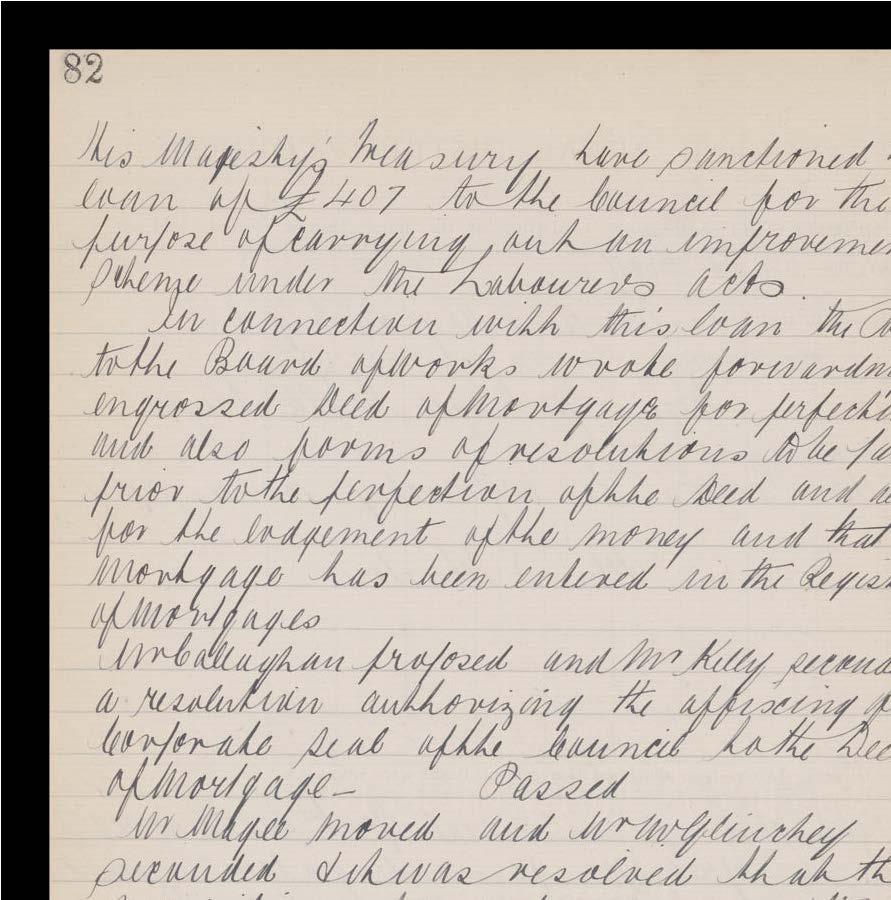 82
His Majesty's Treasury have sanctioned
loan of £407 to the Council for the
purpose of carrying out an improvemen
Scheme under the Labourers acts.
In connection with this loan the
to the Board of Works wrote forwardin
engrossed Deed of Mortgage for perfecti
and also forms of resolutions to be pa
prior to the perfection of the Deed and a
for the lodgement of the money and that
Mortgage has been entered in the Regist
of Mortgages
Mr Callaghan proposed and Mr Kelly second
a resolution authorizing the affixing of
Corporate seal of the Council to the Dee
of Mortgage - Passed
Mr Magee moved and Mr McGlinchey
seconded & it was resolved that th